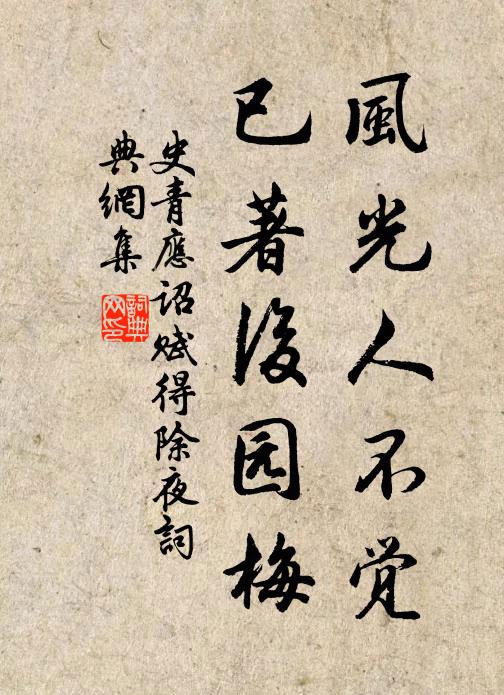 風光人不觉
已著後园梅
史青應詔赋得除夜詞
典網集
詞典
网印